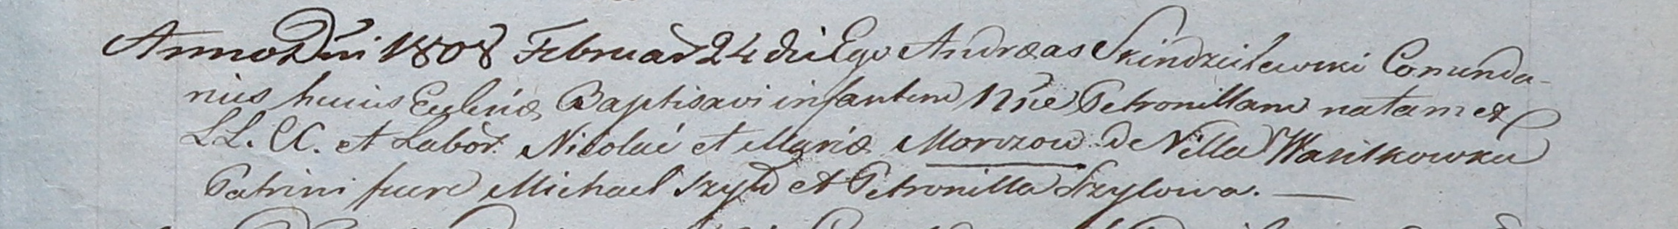 Anno Dni 1808 Februar 24 die Ego Andræas Skindzielewski Comenda-
rius huius Eccleñæ Baptisavi infantem Nñe Petronillam natam ex
LL. CC. et Labor. Nicolai et Mariæ Morozow de Villa Wasilkowka
Patrini fuere Michael Szyło et Petronilla Szylowa. —